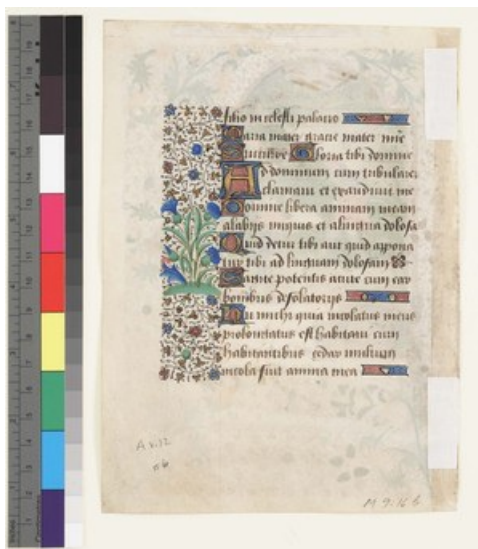 filio in celesti palacio
Maria mater gracie mater mie
Gloria tibi domine
Ad dominum cum tribularer
clamaui et exaudiuit me
Domine libera animam meam
alabijs iniquis et alingua dolosa
Quid detur tibi aut quid appona
tur tibi ad linguam dolosam
Sagite potentis acute cum car
bonibus desolatorijs
Heu michi quia incolatus meus
prolongatus est habitaui cum
habitantibus cedar multum
incola fuit anima mea
M 9:16 b